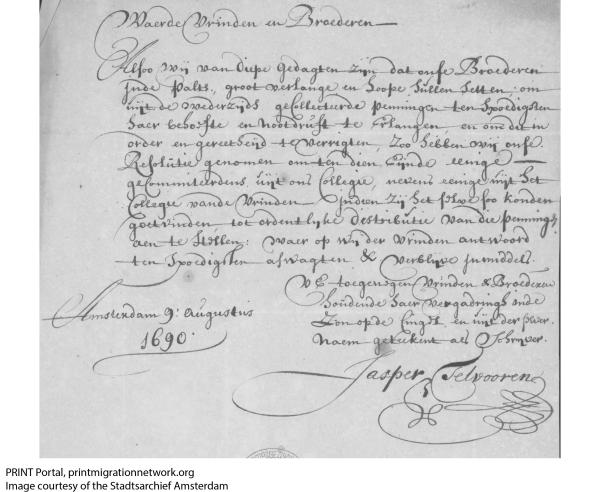 Waerde Vrinden en Broederen
Alsoo wij van diepe gedagten zijn dat onse Broederen
inde Palts, groot verlange en hoope sullen hebben om
uijt de wederzijds gecollecteerde penningen ten spoedigsten
haer behoefte en nootdruft te erlangen, en om dit in
order en gereetheijd te verrigten, Zoo hebben wij onse
Resolutie genomen om ten dien Eijnde eenige
gecommiteerdens uijt ons Collegie, nevens eenige uijt het
Collegie vande Vrinden Indien zij het selve soo konden
goetvinden tot ordentlijke distributie van die penning
aen te stellen: waer op wij der vrinden antwoord
ten spoedigsten afwagten & verblijve inmiddels.
UE toegenegen Vrinden & Broederen
houdende haer vergadrings inde
Zon op de Cingel, en uijt der selver
Naem getekent als Schrijver.
Amsterdam 9: Augustus
1690
Jasper Telvooren
PRINT Portal, printmigrationnetwork.org
Image courtesy of the Stadtsarchief Amsterdam